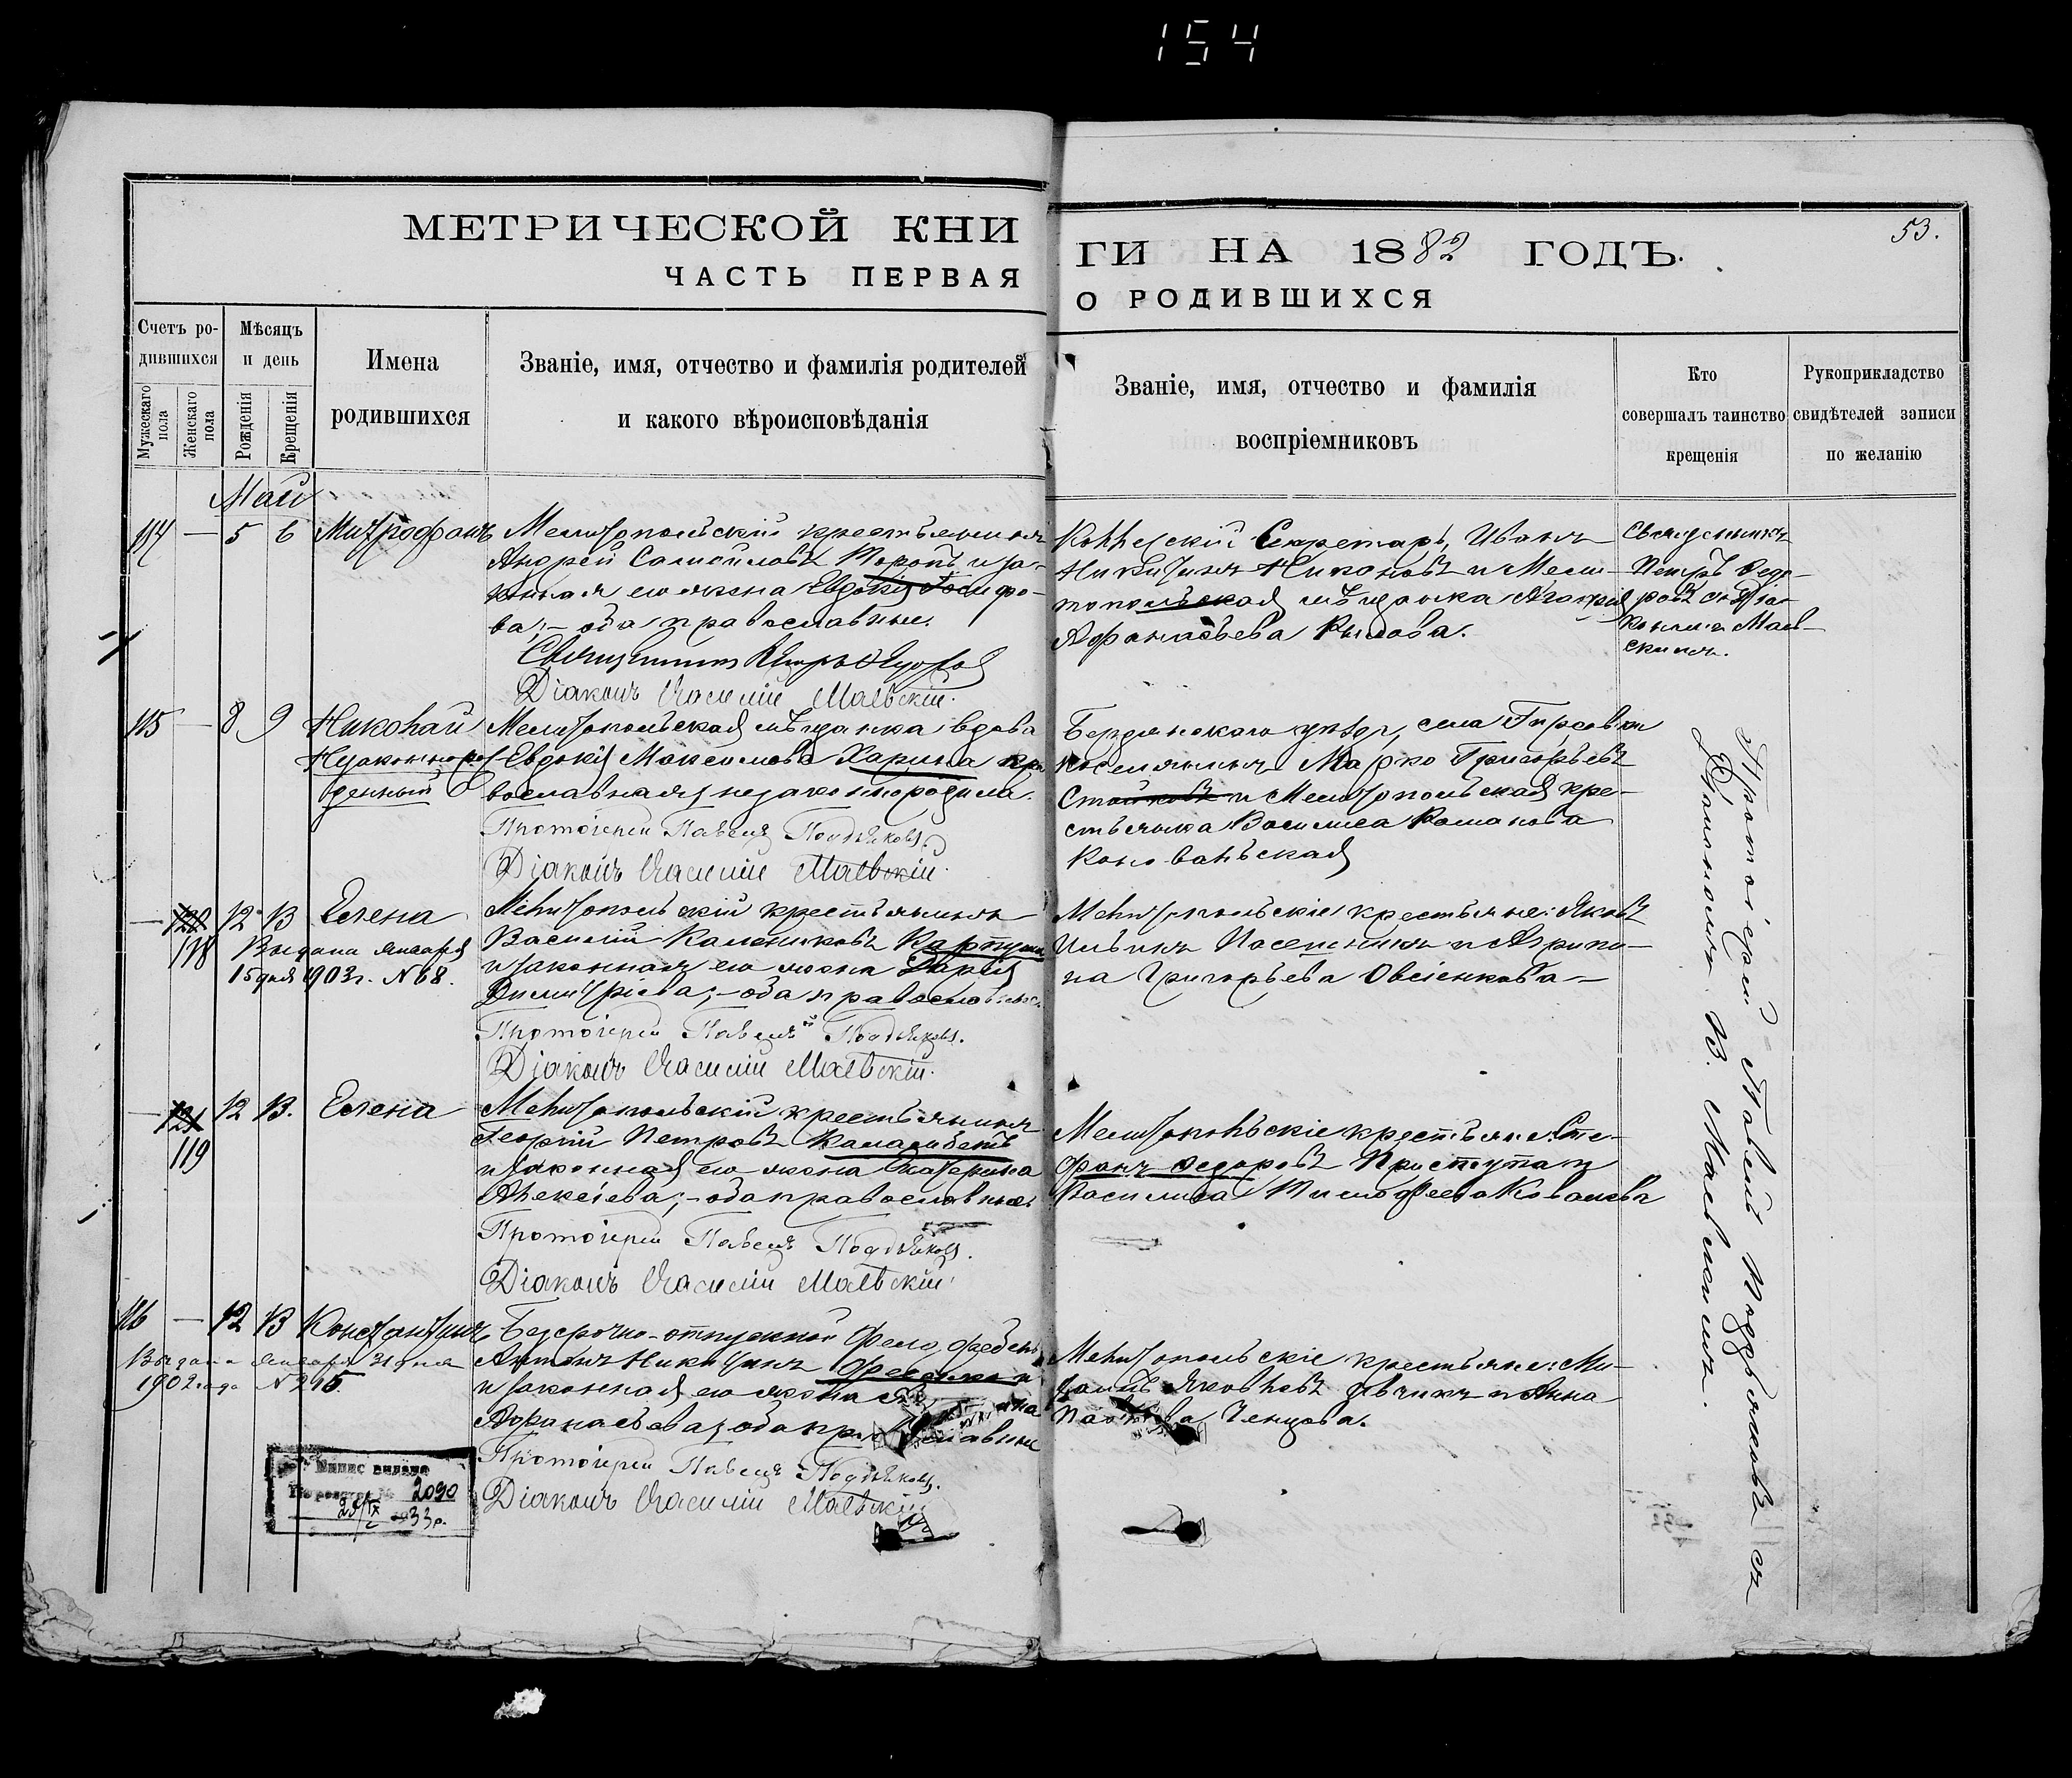 154
МЕТРИЧЕСКОЙ КНИ
ГИ НА 1882 ГОДЪ.
53.
ЧАСТЬ ПЕРВАЯ
О РОДИВШИХСЯ
Счетъ ро-
дившихся
Мужескаго пола
Женскаго пола
Мѣсяцъ
и день
Рожденія
Крещенія
Имена
родившихся
Званіе, имя, отчество и фамилія родителей
и какого вѣроисповѣданія
Званіе, имя, отчество и фамилія
воспріемниковъ
Кто
совершалъ таинство
крещенія
Рукоприкладство
свидѣтелей записи
по желанію
Май
114 — 5 6 Митрофанъ
Мелитопольскій крестьянинъ
Андрей Самойловъ и за-
конная его жена Евдокія Іосифо-
ва; — оба православные.
Священникъ Петръ Ѳедоровъ
Діаконъ Василій Маевскій.
Коллежскій Секретарь, Иванъ
Никитинъ Никоновъ и Мели-
топольская мѣщанка
Афанасьева Рылова.
Священникъ
Петръ Ѳедо-
ровъ съ Діа-
кономъ Маев-
скимъ.
115 — 8 9 Николай
Незаконнорож-
денный
Мелитопольская мѣщанка вдова
Евдокія Максимова Харина пра
вославная, незаконнородила.
Протоіерей Павелъ Поддьяковъ.
Діаконъ Василій Маевскій.
Бердянскаго уѣзда, села Гирсовки
поселянинъ Марко Григорьевъ
Стойковъ и Мелитопольская кре-
стьянка Василиса Романова
Коновальская
— 120 12 13 Елена
118
Выдана Января
15 дня 1903 г. № 68.
Мелитопольскій крестьянинъ
Василій Калениковъ
и законная его жена Дарія
Димитріева; — оба православные.
Протоіерей Павелъ Поддьяковъ.
Діаконъ Василій Маевскій.
Мелитопольскіе крестьяне: Яковъ
Ильинъ и Агрипи-
на Григорьева Овсіенкова —
— 121 12 13. Елена
119
Мелитопольскій крестьянинъ
Георгій Петровъ
и законная его жена Екатерина
Алексіева; — оба православные.
Протоіерей Павелъ Поддьяковъ.
Діаконъ Василій Маевскій.
Мелитопольскіе крестьяне: Сте-
фанъ Ѳедоровъ Приступа и
Василиса Тимофеева Ковалева
116 — 12 13 Константинъ
Выдана Января 31 дня
1902 года № 215.
Безсрочно-отпускной
Антонъ Никитинъ
и законная его жена
Афанасьева; оба православные
Протоіерей Павелъ Поддьяковъ.
Діаконъ Василій Маевскій
Мелитопольскіе крестьяне: Ми-
хаилъ Яковлевъ и Анна
Павлова Ченцова.
Протоіерей Павелъ Поддьяковъ съ
Діакономъ В. Маевскимъ.
видано
2090
33 р.